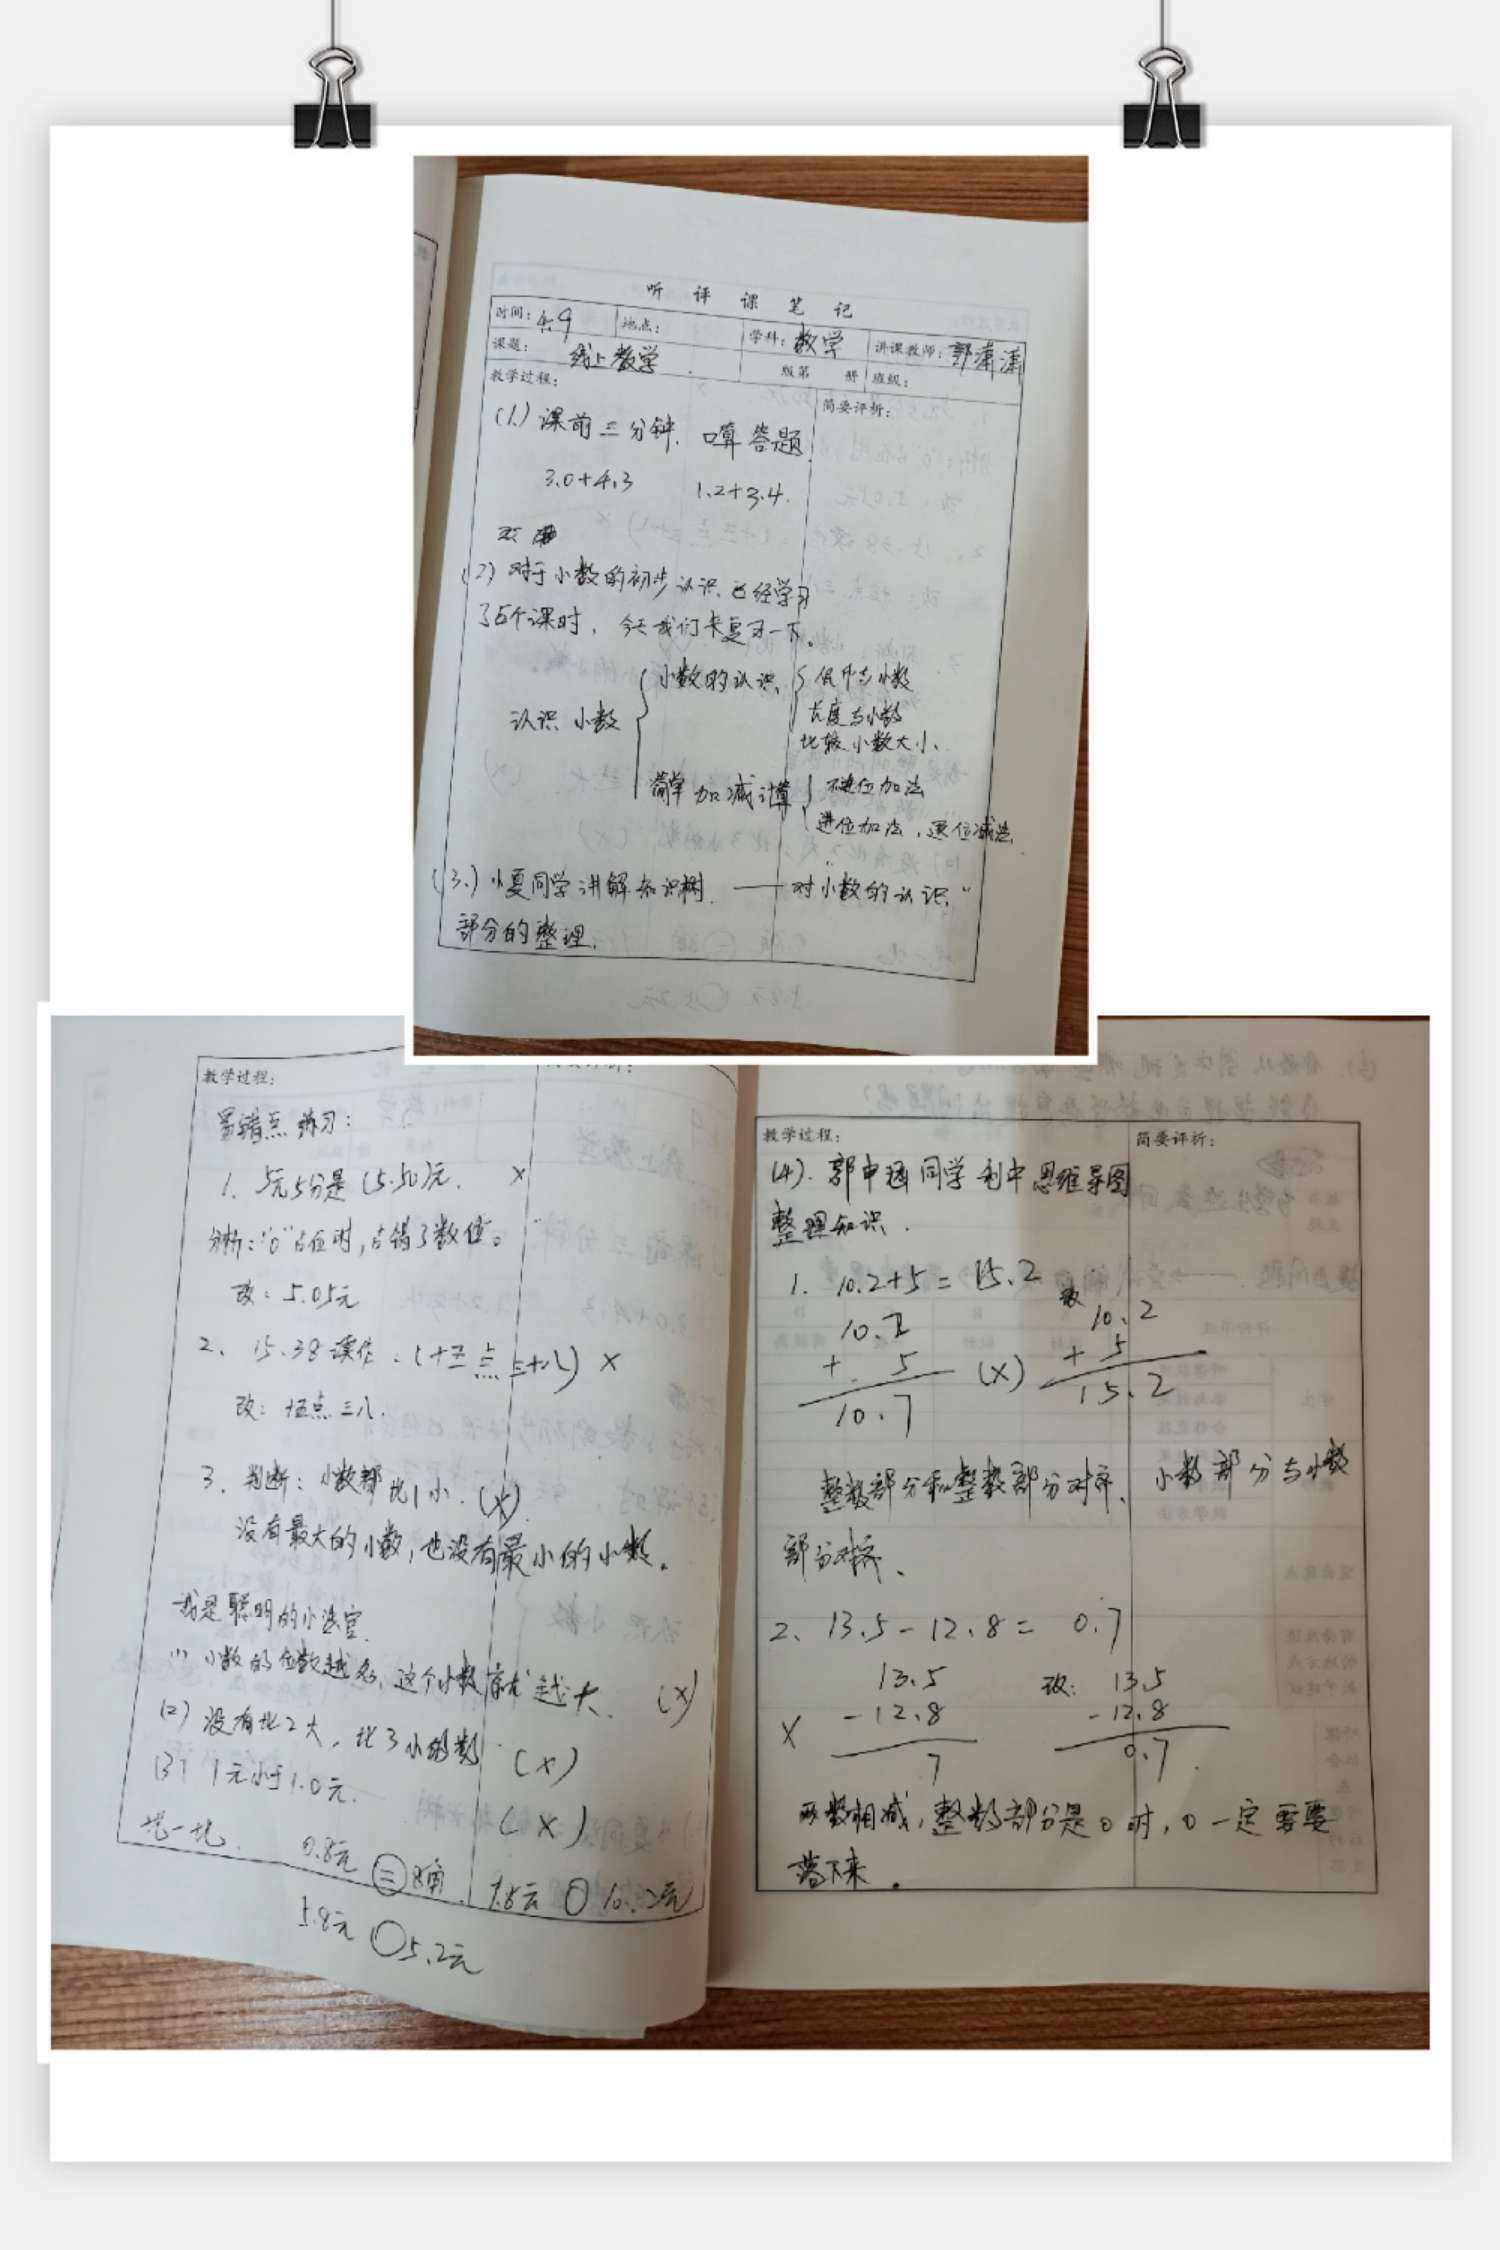 听 评 课 笔 记
时间：4.9 地点： 学科：数学 讲课教师：郭潇潇
课题： 线上教学 版第 册 班级：
教学过程： 简要评析：
(1.) 课前三分钟. 口算答题.
3.0+4.3 1.2+3.4.
(2) 对于小数的初步认识, 已经学习
了5个课时， 今天我们来复习一下。
小数的认识 人民币与小数
长度与小数
认识 小数
比较小数大小、
简单加减计算 不进位加法
进位加法，退位减法
(3.) 小夏同学讲解知识树. ——对“小数的认识”
部分的整理.
教学过程：
易错点练习：
1. 5元5分是(5.50)元. ×
分析：“0”占位时, 占错了数位。
改：5.05元
2、 15.38 读作：(十五点三十八) ×
改：十五点三八.
3. 判断：小数都比1小. (×)
没有最大的小数, 也没有最小的小数。
我是聪明的小法官.
(1) 小数的位数越多, 这个小数就越大. (×)
(2) 没有比2大，比3小的数. (×)
(3) 1元小于1.0元. (×)
比一比. 0.8元 = 8角. 7.5元 ○ 10.2元
5.8元 ○ 5.2元
教学过程： 简要评析：
(4). 郭申通同学利用思维导图
整理知识.
1. 10.2+5= 15.2
10.2 改 10.2
+ 5 (×) + 5
10.7 15.2
整数部分和整数部分对齐、小数部分与小数
部分对齐、
2、 13.5-12.8= 0.7
13.5 改： 13.5
× -12.8 -12.8
7 0.7.
两数相减, 整数部分是0时, 0一定要要
落下来。